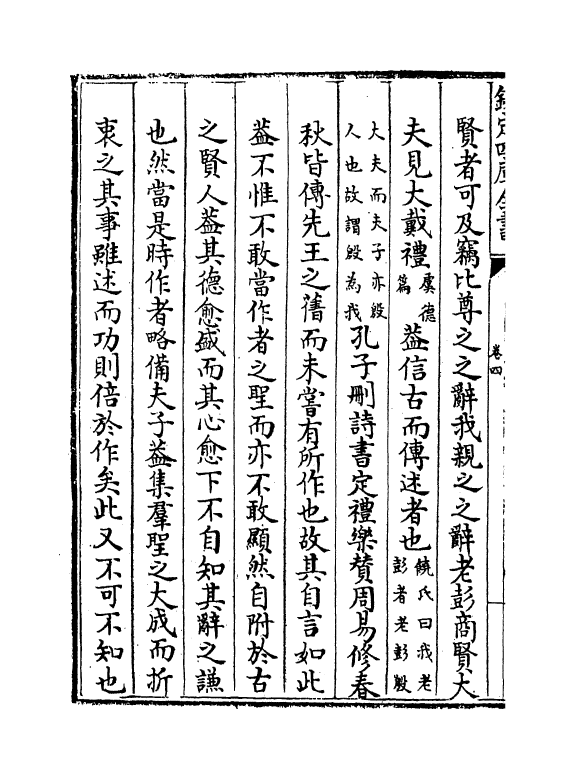 欽定四庫全書
卷四
賢者可及竊比尊之之辭我親之之辭老彭商賢大
夫見大戴禮虞德篇葢信古而傳述者也饒氏曰我老彭者老彭殷
大夫而夫子亦殷人也故謂殷為我孔子刪詩書定禮樂賛周易修春
秋皆傳先王之舊而未嘗有所作也故其自言如此
葢不惟不敢當作者之聖而亦不敢顯然自附於古
之賢人葢其德愈盛而其心愈下不自知其辭之謙
也然當是時作者略備夫子葢集羣聖之大成而折
衷之其事雖述而功則倍於作矣此又不可不知也